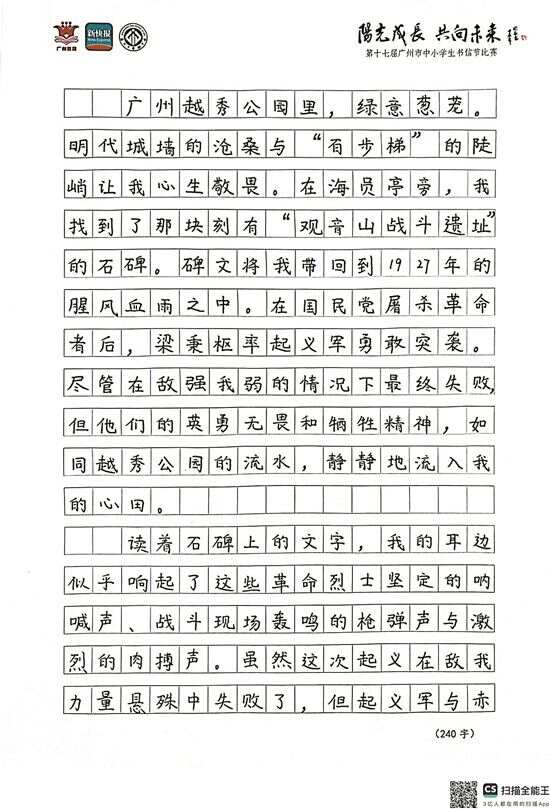 广州教育
新快报
阳光成长 共向未来
第十七届广州市中小学生书信节比赛
广州越秀公园里，绿意葱茏。
明代城墙的沧桑与“百步梯”的陡
峭让我心生敬畏。在海员亭旁，我
找到了那块刻有“观音山战斗遗址”
的石碑。碑文将我带回到1927年的
腥风血雨之中。在国民党屠杀革命
者后，梁秉枢率起义军勇敢突袭。
尽管在敌强我弱的情况下最终失败，
但他们的英勇无畏和牺牲精神，如
同越秀公园的流水，静静地流入我
的心田。
读着石碑上的文字，我的耳边
似乎响起了这些革命烈士坚定的呐
喊声、战斗现场轰鸣的枪弹声与激
烈的肉搏声。虽然这次起义在敌我
力量悬殊中失败了，但起义军与赤
（240字）
CS 扫描全能王
3亿人都在用的扫描App